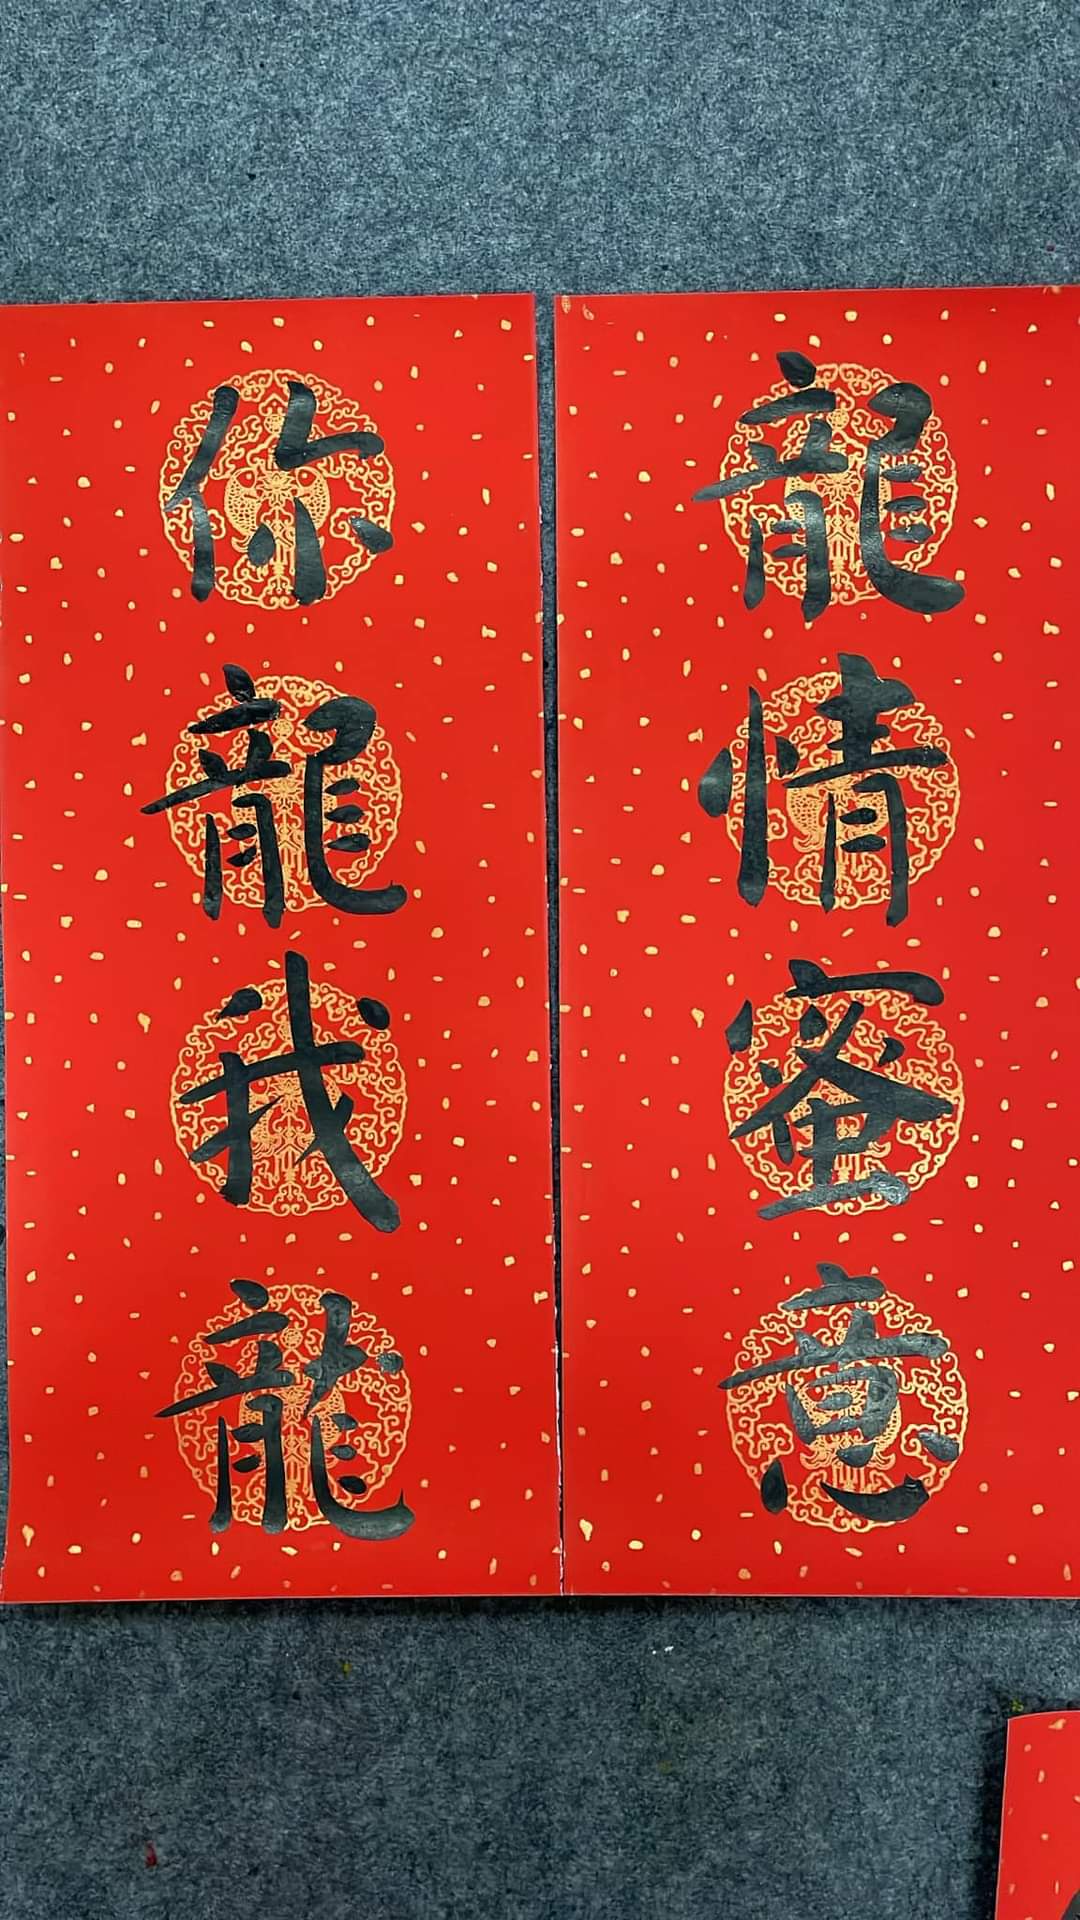 龍情蜜意
你龍我龍